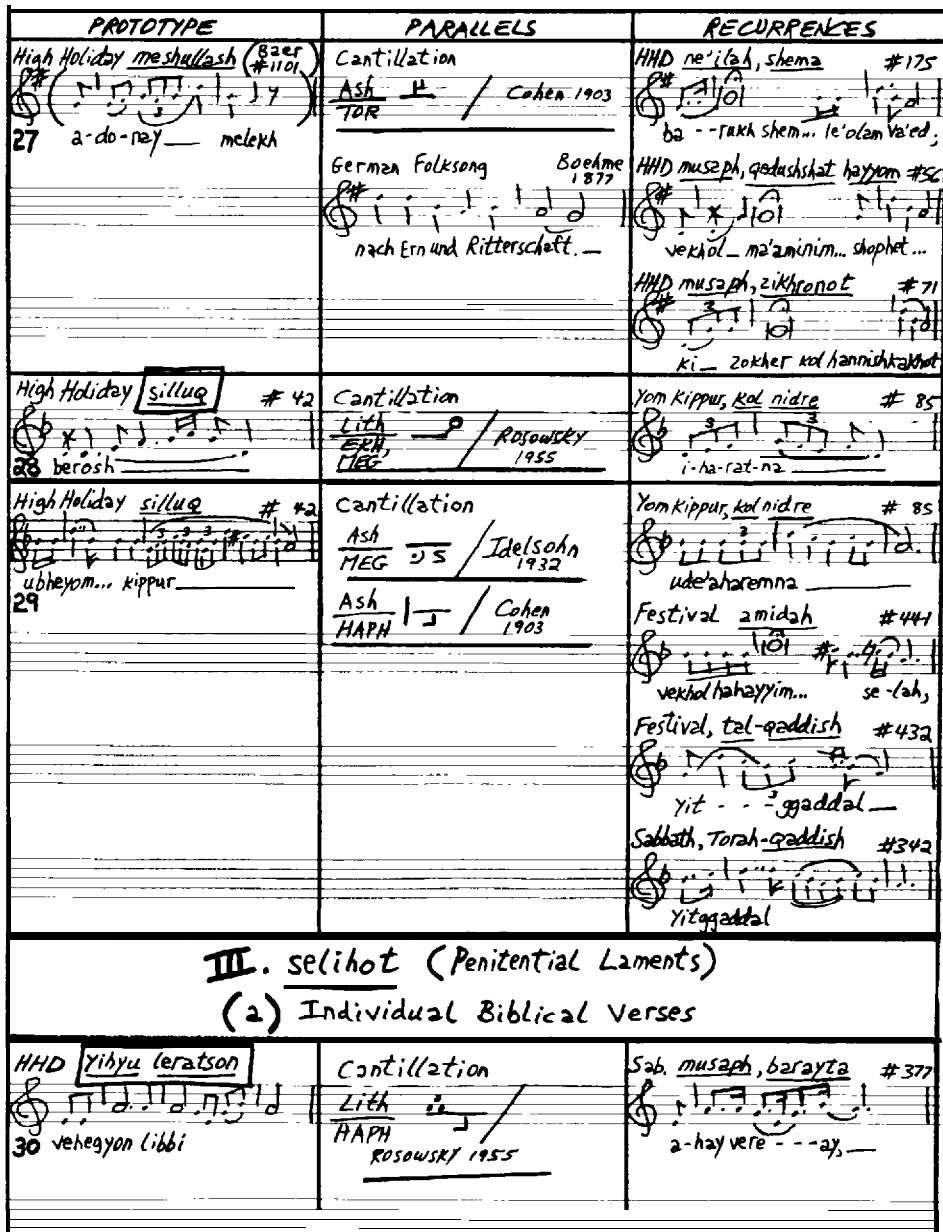 PROTOTYPE PARALLELS RECURRENCES
High Holiday meshullash (Baer #1101)
27 a-do-nay melekh
Cantillation
Ash TOR / Cohen 1903
German Folksong Boehme 1877
nach Ern und Ritterschaft.
HHD ne'ilah, shema #175
ba - - rukh shem... le'olam va'ed,
HHD musaph, qedushshat hayyom #56
vekhol ma'aminim... shophet...
HHD musaph, zikhronot #71
3
ki zokher kol hannishkakhot
High Holiday silluq #42
28 berosh
Cantillation
Lith EKH, MEG / Rosowsky 1955
Yom Kippur, kol nidre #85
3 3
i-ha-rat-na
High Holiday silluq #42
3 3 3
ubheyom... kippur
29
Cantillation
Ash MEG / Idelsohn 1932
Ash HAPH / Cohen 1903
Yom Kippur, kol nidre #85
3
ude'aharemna
Festival amidah #441
vekhol hahayyim... se-lah,
Festival, tal-qaddish #432
3
Yit - - - ggaddal
Sabbath, Torah-qaddish #342
Yitggaddal
III. selihot (Penitential Laments)
(a) Individual Biblical Verses
HHD yihyu leratson
30 vehegyon libbi
Cantillation
Lith HAPH /
ROSOWSKY 1955
Sab. musaph, barayta #377
a-hay vere - - - ay,